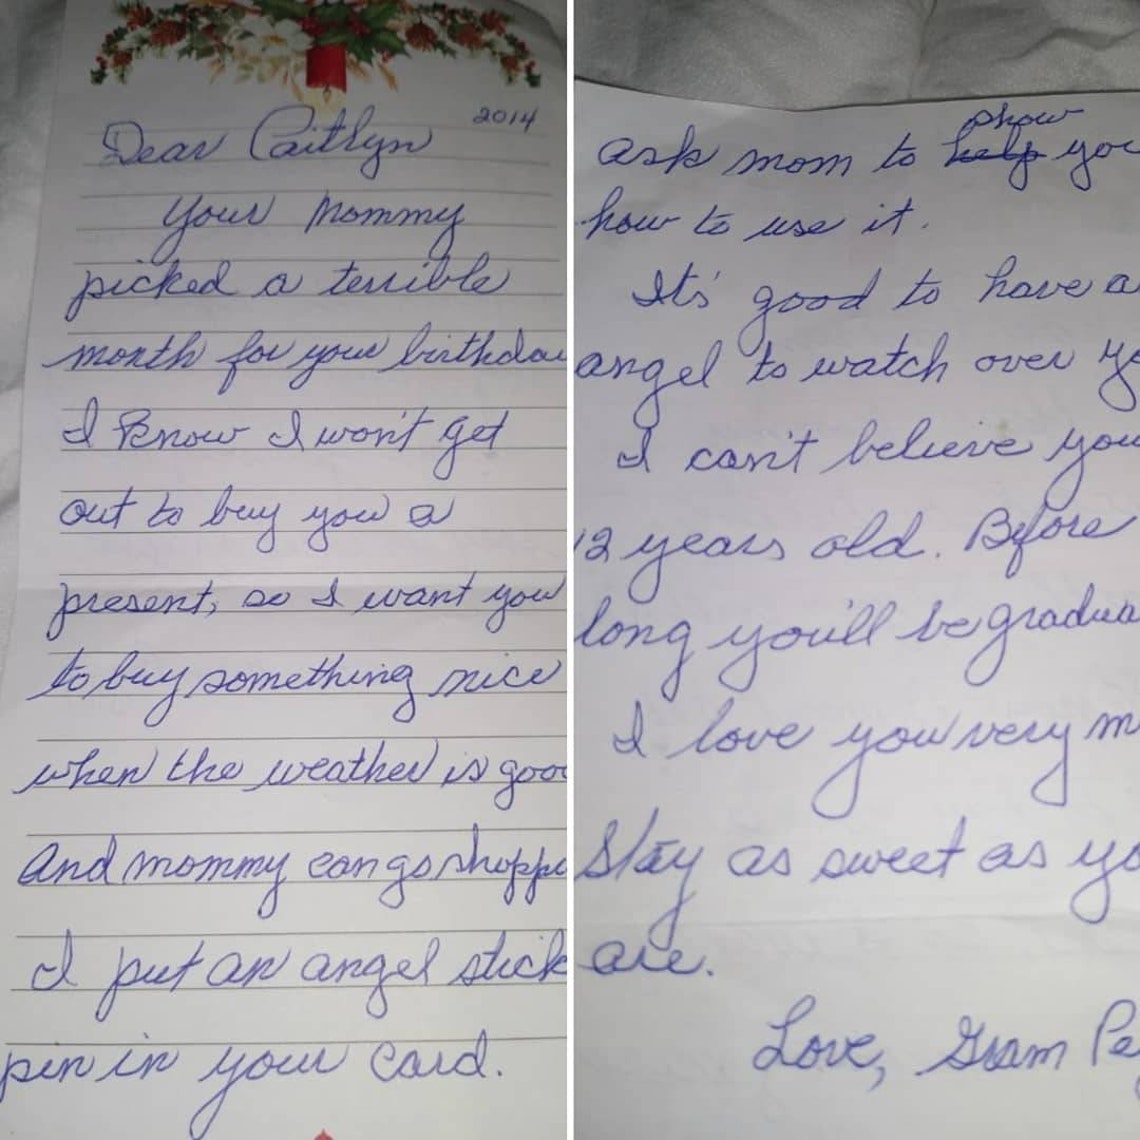 2014
Dear Caitlyn
Your Mommy
picked a terrible
month for your birthda
I know I won't get
out to buy you a
present, so I want you
to buy something nice
when the weather is goo
And mommy can go shoppi
I put an angel stick
pin in your card.
ask mom to help show you
how to use it.
It's good to have a
angel to watch over yo
I can't believe you
12 years old. Before
long you'll be gradua
I love you very m
Stay as sweet as yo
are.
Love, Gram Pe